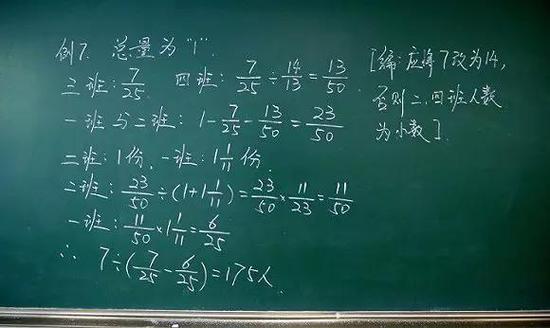 例7. 总量为"1".
三班: 7/25  四班: 7/25 ÷ 14/13 = 13/50
一班与二班: 1 - 7/25 - 13/50 = 23/50
二班: 1份. 一班: 1 1/11 份.
二班: 23/50 ÷ (1 + 1 1/11) = 23/50 × 11/23 = 11/50
一班: 11/50 × 1 1/11 = 6/25
∴ 7 ÷ (7/25 - 6/25) = 175人.
[编: 应将7改为14,
否则二、四班人数
为小数].